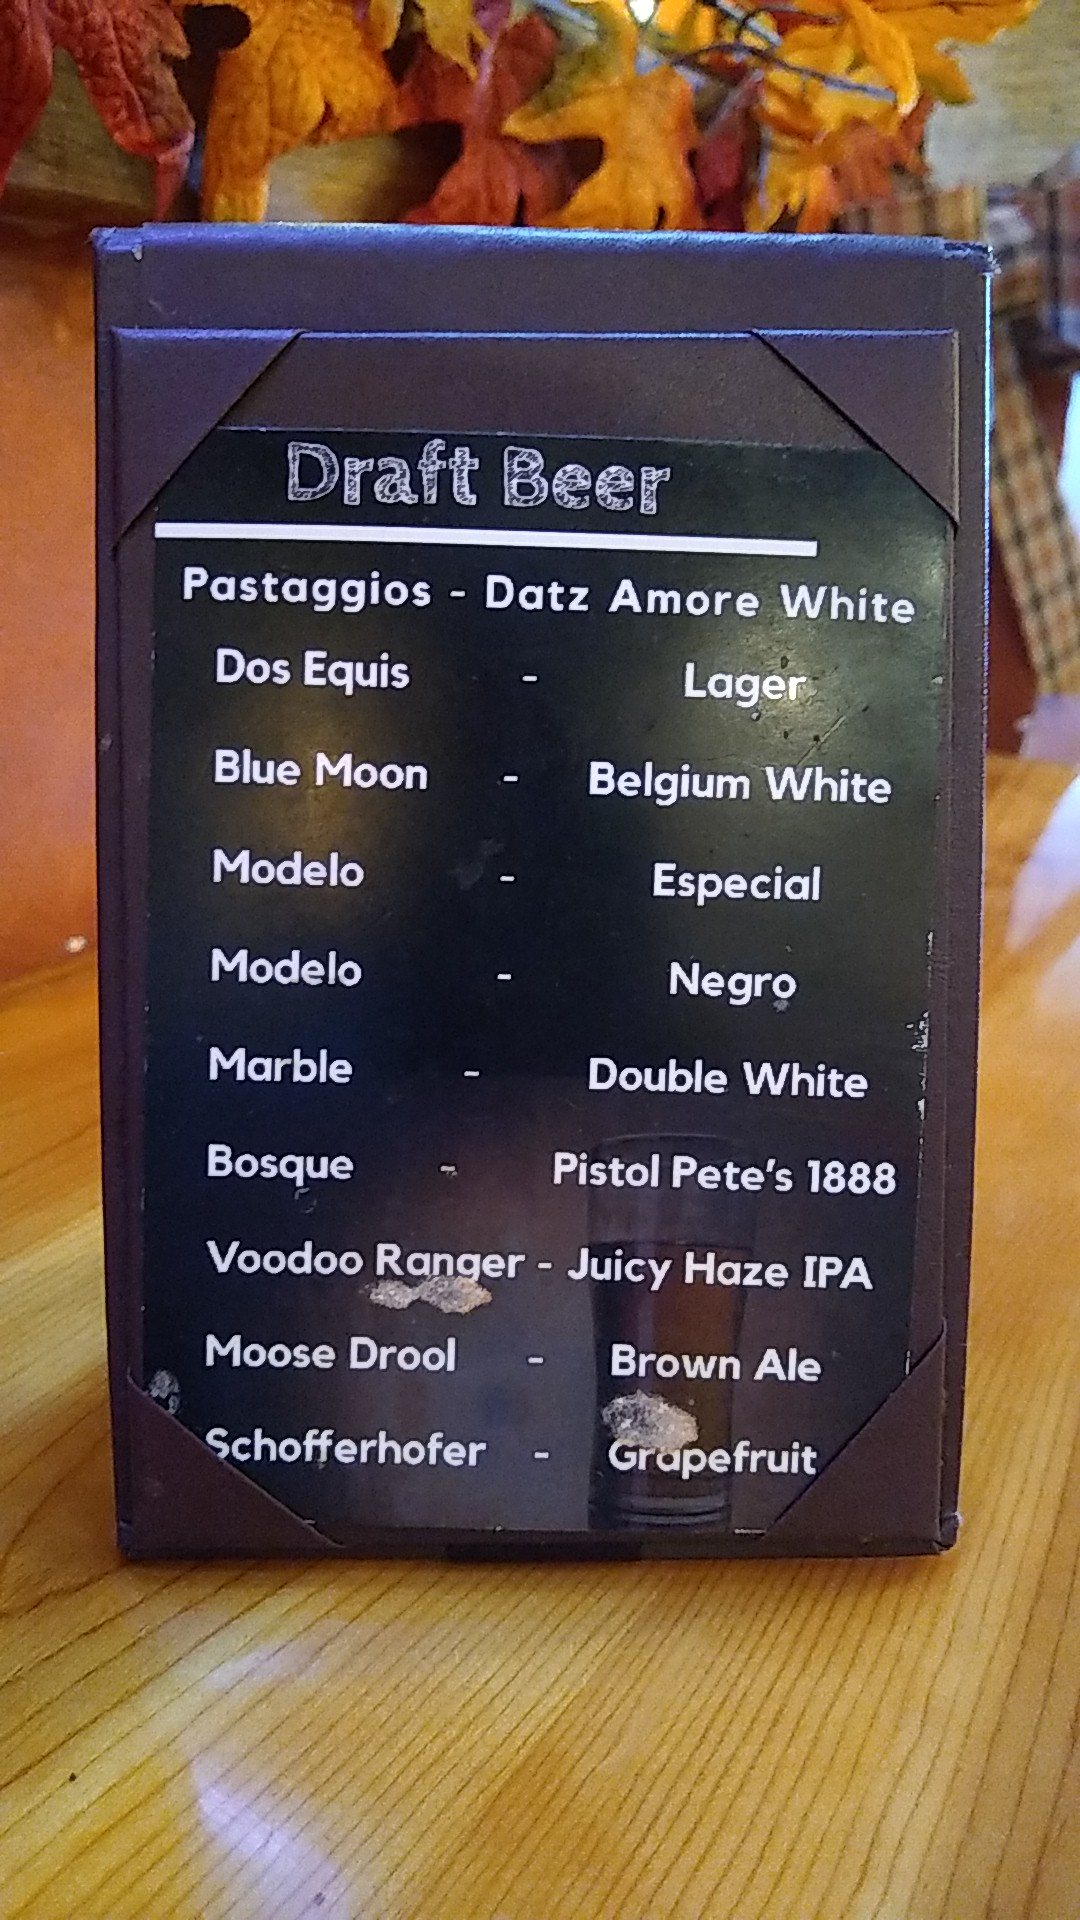 Draft Beer
Pastaggios - Datz Amore White
Dos Equis - Lager
Blue Moon - Belgium White
Modelo - Especial
Modelo - Negro
Marble - Double White
Bosque - Pistol Pete's 1888
Voodoo Ranger - Juicy Haze IPA
Moose Drool - Brown Ale
Schofferhofer - Grapefruit